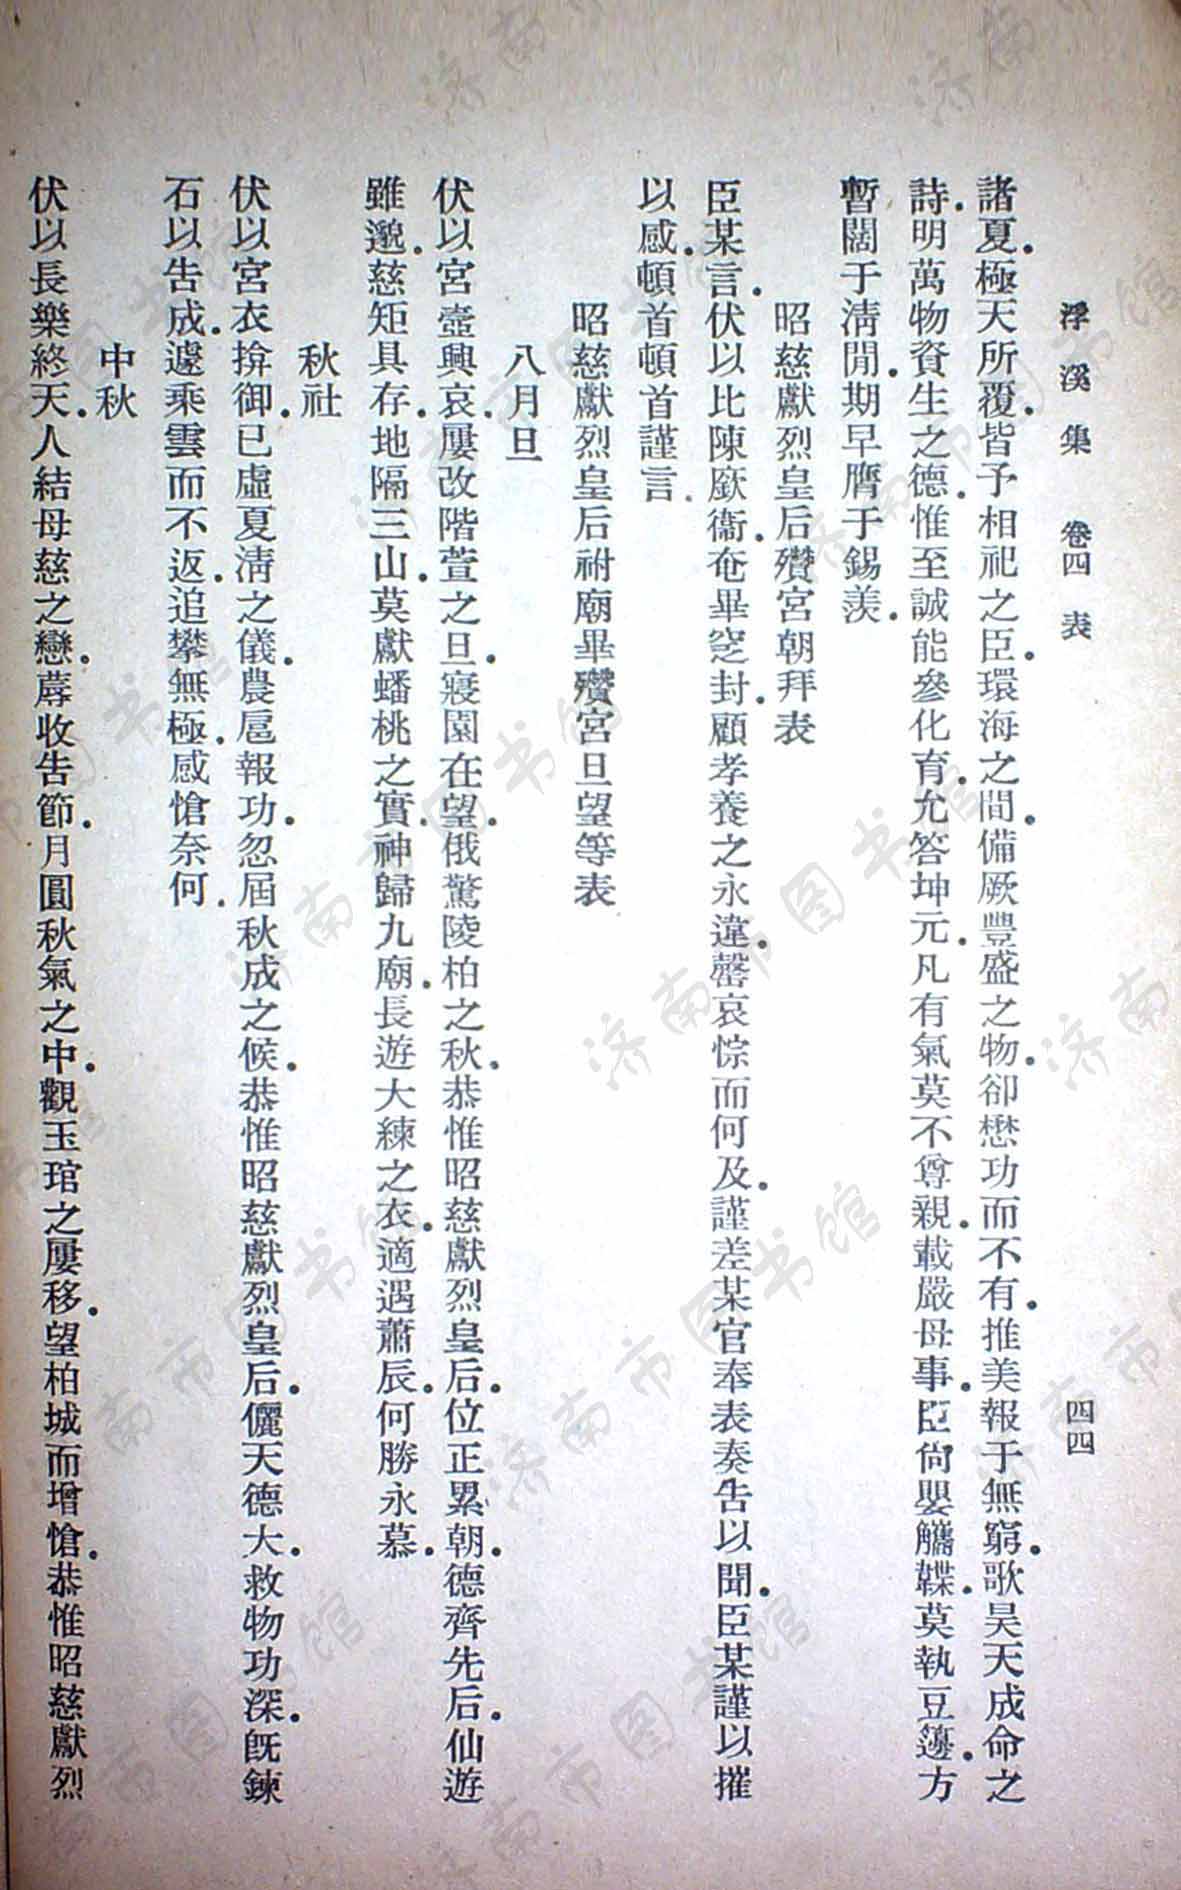 浮溪集 卷四 表 四四
諸夏．極天所覆．皆予相祀之臣．環海之間．備厥豐盛之物．卻懋功而不有．推美報于無窮．歌昊天成命之
詩．明萬物資生之德．惟至誠能參化育．允答坤元．凡有氣莫不尊親．載嚴母事．臣尙嬰觿韘．莫執豆籩．方
暫闊于淸閒．期早膺于錫羨．
昭慈獻烈皇后欑宮朝拜表
臣某言．伏以比陳廞衞．奄畢窆封．顧孝養之永違．罄哀悰而何及．謹差某官奉表奏告以聞．臣某謹以摧
以感．頓首頓首謹言．
昭慈獻烈皇后祔廟畢欑宮旦望等表
八月旦
伏以宮壼興哀．屢改階萱之旦．寢園在望．俄驚陵柏之秋．恭惟昭慈獻烈皇后．位正累朝．德齊先后．仙遊
雖邈．慈矩具存．地隔三山．莫獻蟠桃之實．神歸九廟．長遊大練之衣．適遇蕭辰．何勝永慕．
秋社
伏以宮衣揜御．已虛夏淸之儀．農扈報功．忽屆秋成之候．恭惟昭慈獻烈皇后．儷天德大．救物功深．旣鍊
石以告成．遽乘雲而不返．追攀無極．感愴奈何．
中秋
伏以長樂終天．人結母慈之戀．蓐收告節．月圓秋氣之中．觀玉琯之屢移．望柏城而增愴．恭惟昭慈獻烈
济南市图书馆